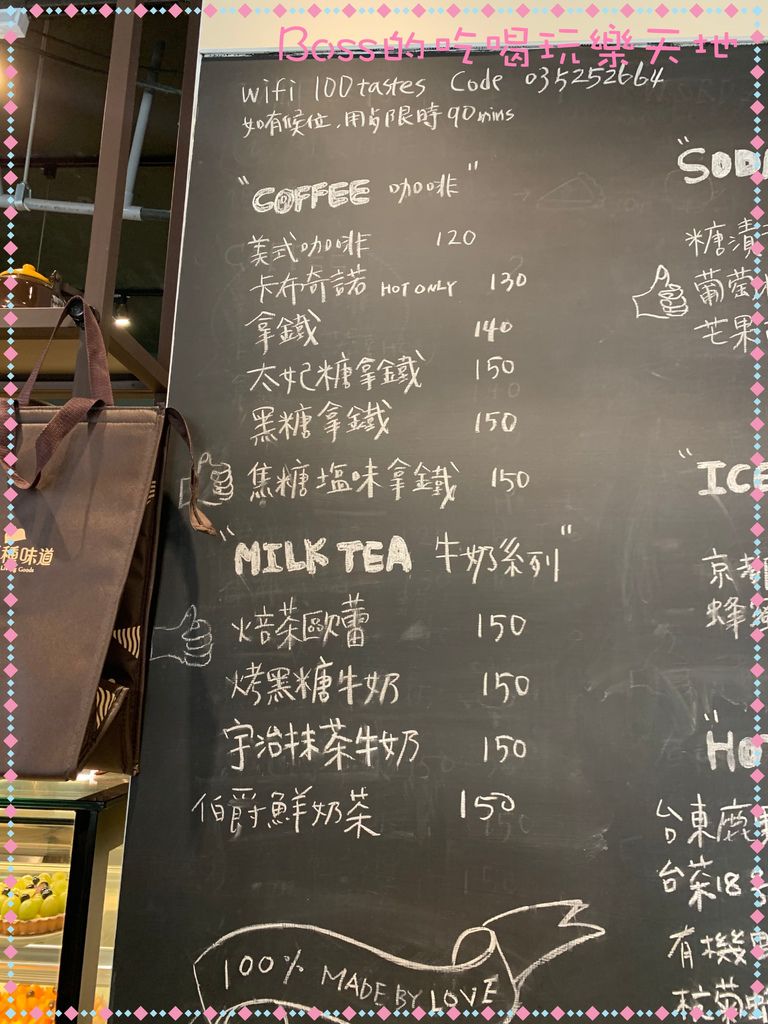 Boss的吃喝玩樂天地
wifi 100tastes Code 035252664
如有候位,用餐限時90mins
"COFFEE 咖啡"
美式咖啡 120
卡布奇諾 HOT ONLY 130
拿鐵 140
太妃糖拿鐵 150
黑糖拿鐵 150
焦糖塩味拿鐵 150
"MILK TEA 牛奶系列"
焙茶歐蕾 150
烤黑糖牛奶 150
宇治抹茶牛奶 150
伯爵鮮奶茶 150
100% MADE BY LOVE
"SODA
糖漬
葡萄
芒果
"ICE
京都
蜂蜜
"HOT
台東鹿
台茶18號
有機
杭菊
種味道
Living Goods